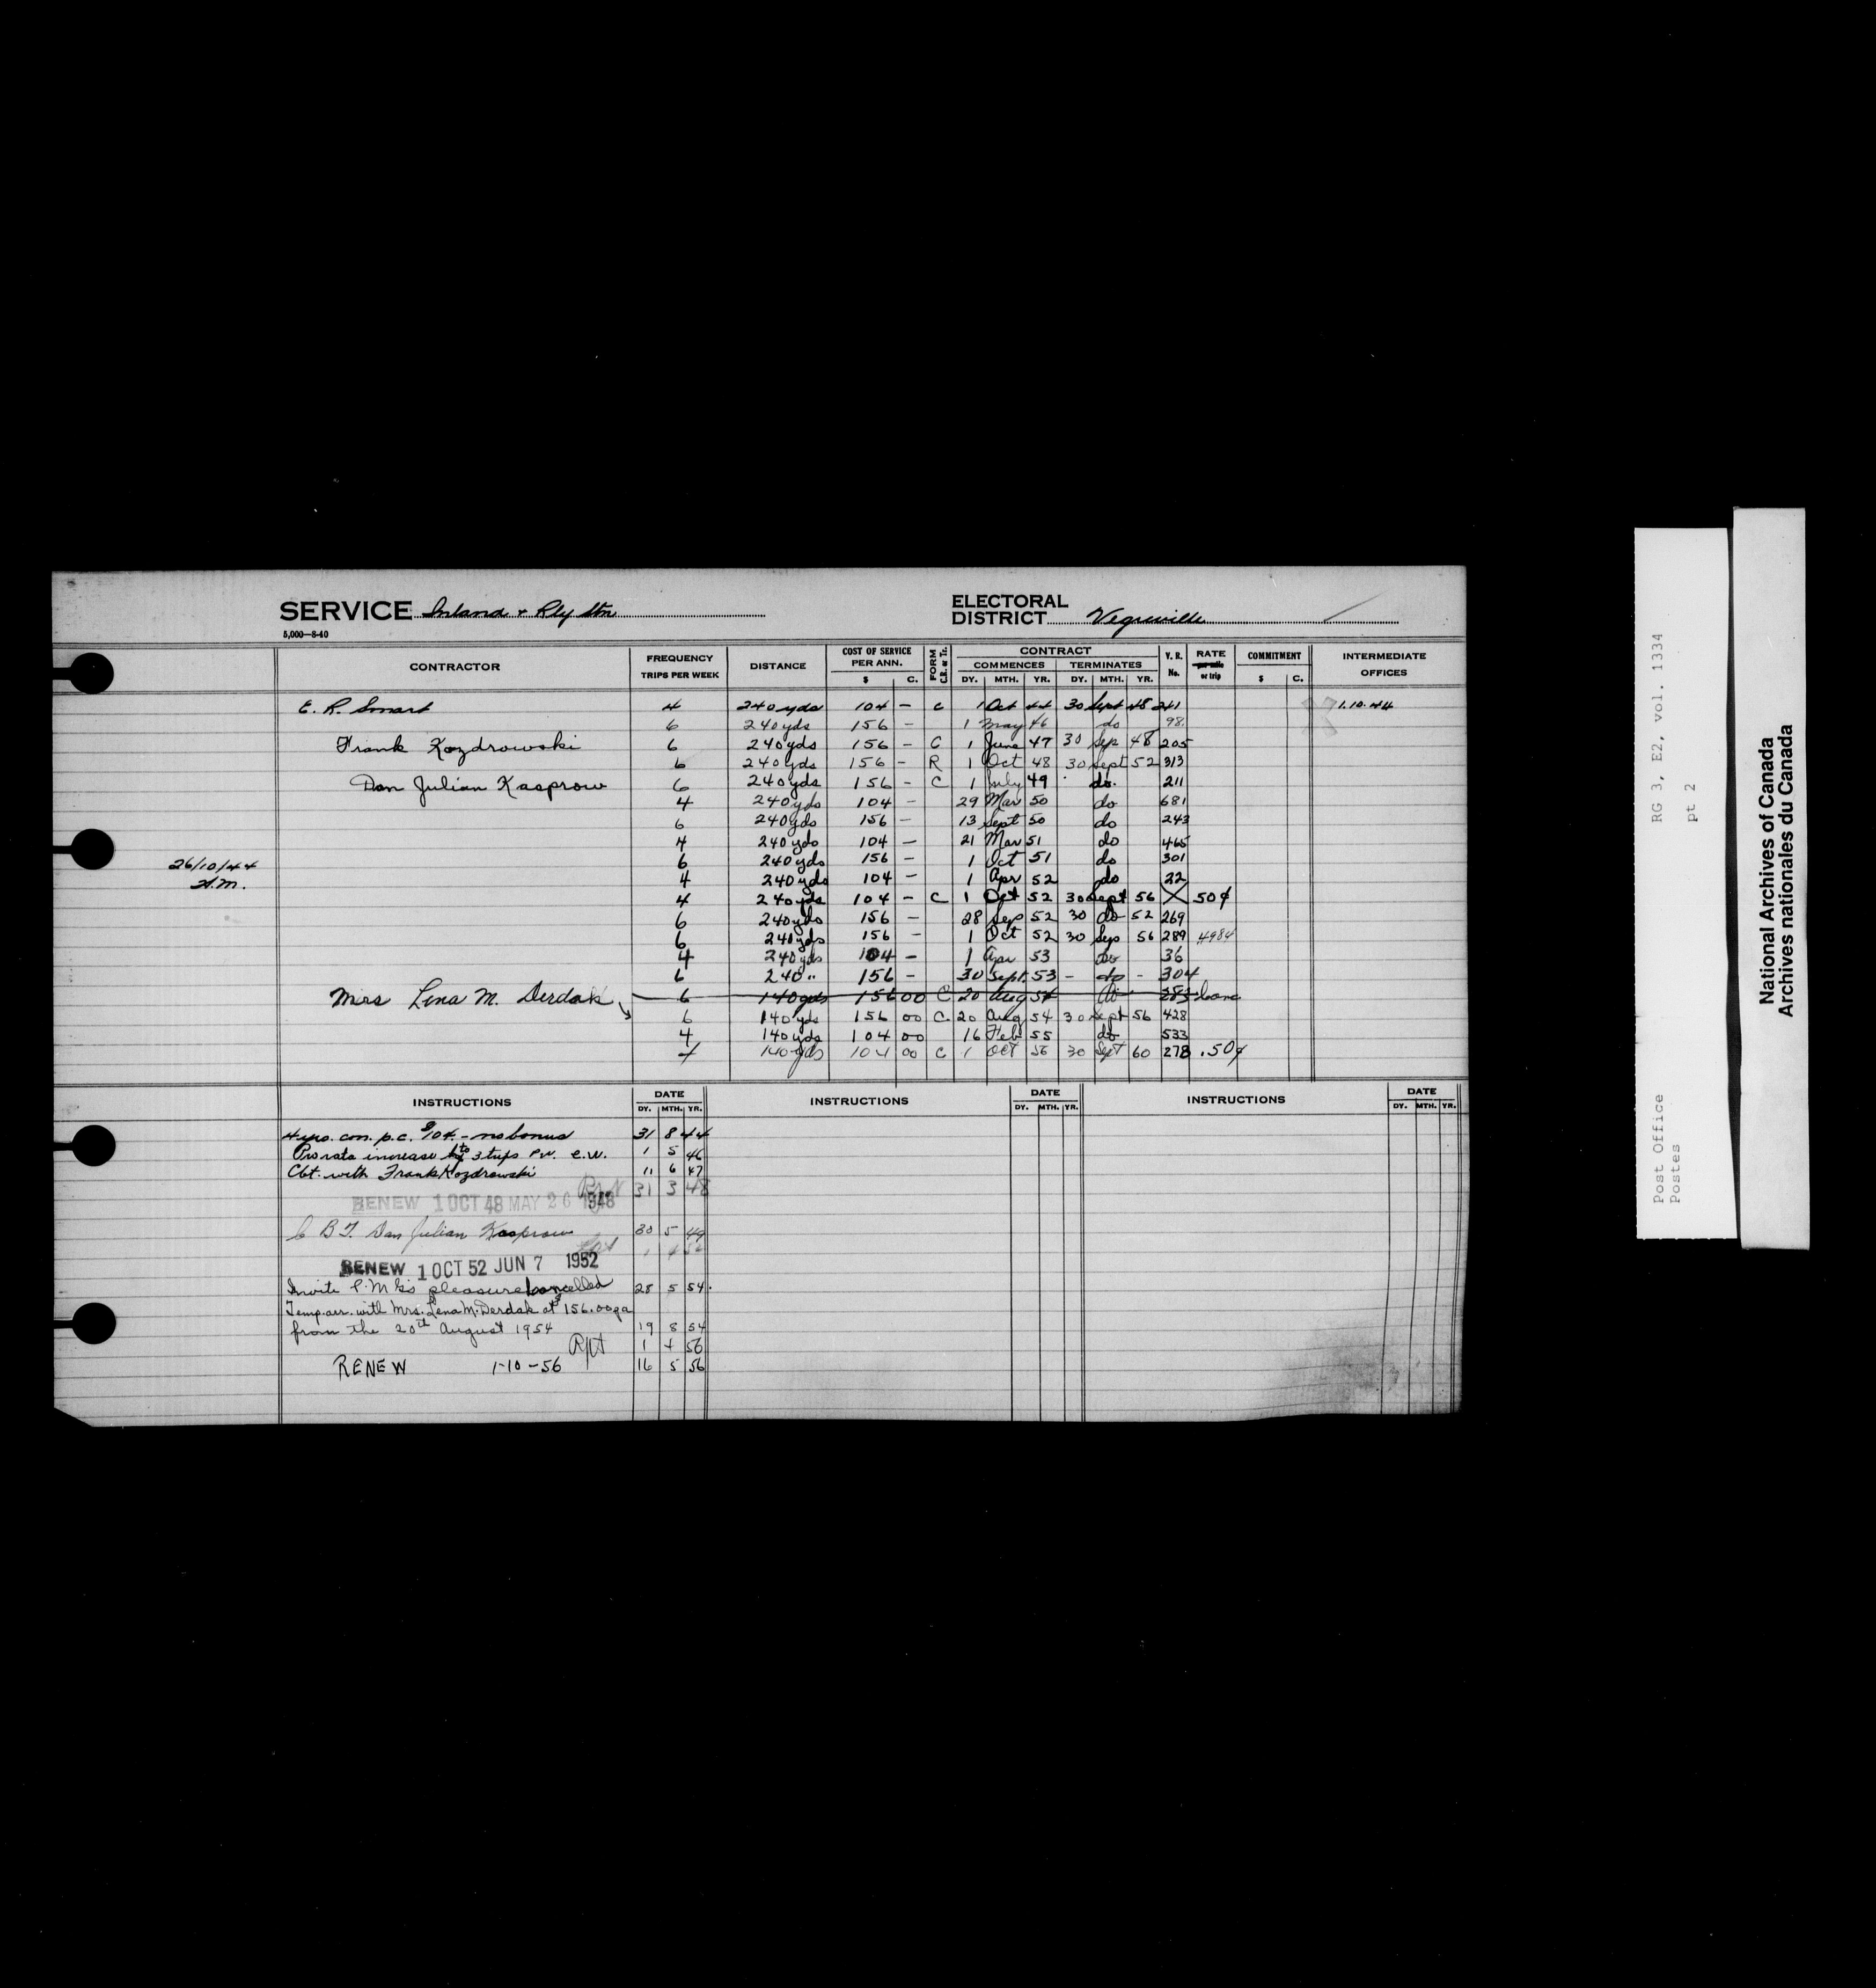 SERVICE Inland & Rly Stn
ELECTORAL DISTRICT Vegreville
5,000—8-40
CONTRACTOR FREQUENCY TRIPS PER WEEK DISTANCE COST OF SERVICE PER ANN. $ C. FORM C.R. or Tr. CONTRACT COMMENCES DY. MTH. YR. TERMINATES DY. MTH. YR. V.R. No. RATE per mile or trip COMMITMENT $ C. INTERMEDIATE OFFICES
E. R. Smart 4 240 yds 104 — C 1 Oct 44 30 Sept 48 241 1.10.44
6 240 yds 156 — 1 May 46 do 98
Frank Kozdrowski 6 240 yds 156 — C 1 June 47 30 Sep 48 205
6 240 yds 156 — R 1 Oct 48 30 Sept 52 313
Dan Julian Kasprow 6 240 yds 156 — C 1 July 49 do. 211
4 240 yds 104 — 29 Mar 50 do 681
6 240 yds 156 — 13 Sept 50 do 243
4 240 yds 104 — 21 Mar 51 do 465
26/10/44 6 240 yds 156 — 1 Oct 51 do 301
H.M. 4 240 yds 104 — 1 Apr 52 do 22
4 240 yds 104 — C 1 Oct 52 30 Sept 56 X 50¢
6 240 yds 156 — 28 Sep 52 30 do 52 269
6 240 yds 156 — 1 Oct 52 30 Sep 56 289
4 240 yds 104 — 1 Apr 53 do 36
6 240 " 156 — 30 Sept. 53 - do - 304
Mrs Lena M. Derdak 6 140 yds 156 00 C 20 Aug 54 do 283 canc
6 140 yds 156 00 C. 20 Aug 54 30 Sept 56 428
4 140 yds 104 00 16 Feb 55 do 533
4 140 yds 104 00 C 1 Oct 56 30 Sept 60 278 .50¢
INSTRUCTIONS DATE DY. MTH. YR. INSTRUCTIONS DATE DY. MTH. YR. INSTRUCTIONS DATE DY. MTH. YR.
4 yrs. con. p.c. $104. - no bonus 31 8 44
Pro rata increase to 3 trips P.W. e.w. 1 5 46
Cbt. with Frank Kozdrowski 11 6 47
31 3 48
RENEW 1 OCT 48 MAY 26 1948
C B T. Dan Julian Kasprow 30 5 49
RENEW 1 OCT 52 JUN 7 1952
Invite P.M G's pleasure cancelled 28 5 54.
Temp. ser. with Mrs. Lena M. Derdak at $156.00 pa
from the 20th August 1954 19 8 54
Rpt 1 4 56
RENEW 1-10-56 16 5 56
Post Office RG 3, E2, vol. 1334
Postes pt 2
National Archives of Canada
Archives nationales du Canada